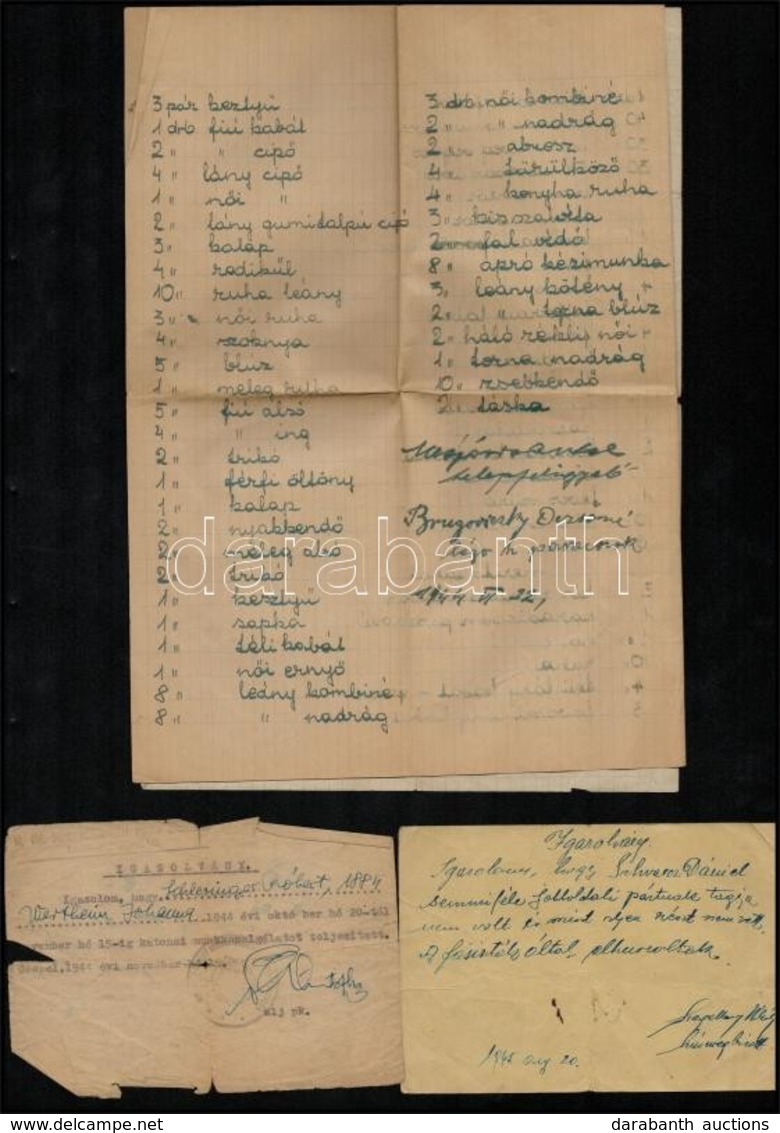 3 pár keztyü
1 drb fiú kabát
2 " " cipő
4 " lány cipő
1 " női "
2 " lány gumitalpú cipő
3 " kalap
4 " redikül
10 " ruha leány
3 " női ruha
4 " szoknya
5 " bluz
1 " meleg ruha
5 " fiú alsó
4 " " ing
2 " trikó
1 " férfi öltöny
1 " kalap
2 " nyakkendő
2 " meleg alsó
2 " trikó
1 " keztyü
1 " sapka
1 " téli kabát
1 " női ernyő
8 " leány kombiné
8 " " nadrág
3 drb női kombiné
2 " " nadrág
2 " abrosz
4 " türülköző
4 " konyha ruha
3 " kis szalvéta
2 " falvédő
8 " apró kézimunka
3 " leány kötény
2 " " torna blúz
2 " háló rekli női
1 " torna nadrág
10 " zsebkendő
2 " táska
telepfelügyelő
Brugoviczky Dezsőné
1944. VI 22,
darabanth
IGAZOLVÁNY.
Igazolom, hogy Schlesinger Róbert, 1884
Wertheim Johanna .1944 évi október hó 20-tól
november hó 15-ig katonai munkaszolgálatot teljesitett.
Csepel,1944 évi november
alj pk.
Igazolvány
Igazolom, hogy Schwarcz Dániel
semmiféle Jobboldali pártnak tagja
nem volt és mint olyan részt nem vett.
A fasiszták által elhurcoltatott
1945 aug 20.
www.darabanth.com
darabanth auctions